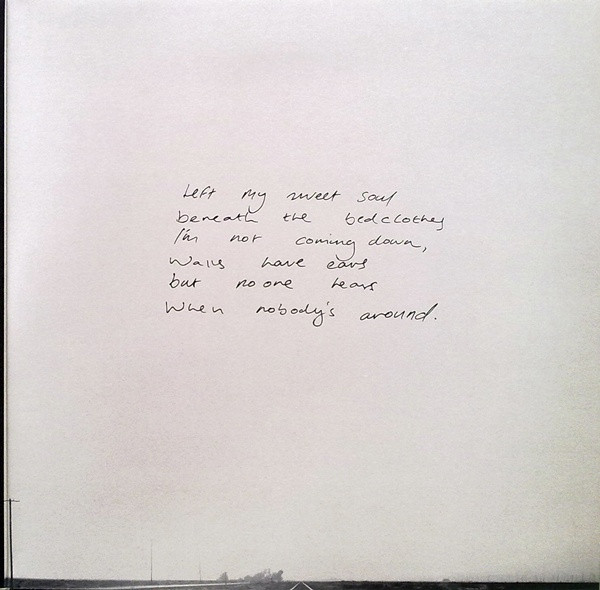 Left my sweet soul
beneath the bedclothes
I'm not coming down,
Walls have ears
but no one hears
When nobody's around.